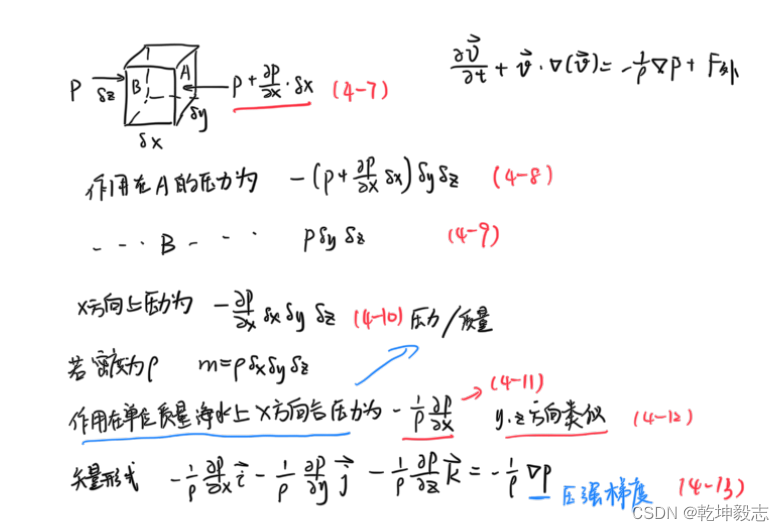 ∂v⃗/∂t + v⃗·∇(v⃗) = -1/ρ ∇p + F外
P δz B A p + ∂p/∂x · δx (4-7)
δy
δx
作用在A的压力为 -(p + ∂p/∂x δx) δy δz (4-8)
- - · B - - · pδy δz (4-9)
x方向上压力为 -∂p/∂x δx δy δz (4-10) 压力/质量
若密度为ρ m=ρδxδyδz
作用在单位质量海水上x方向合压力为 -1/ρ ∂p/∂x (4-11) y.z方向类似 (4-12)
矢量形式 -1/ρ ∂p/∂x i⃗ - 1/ρ ∂p/∂y j⃗ - 1/ρ ∂p/∂z k⃗ = -1/ρ ∇p 压强梯度 (4-13)
CSDN @乾坤毅志